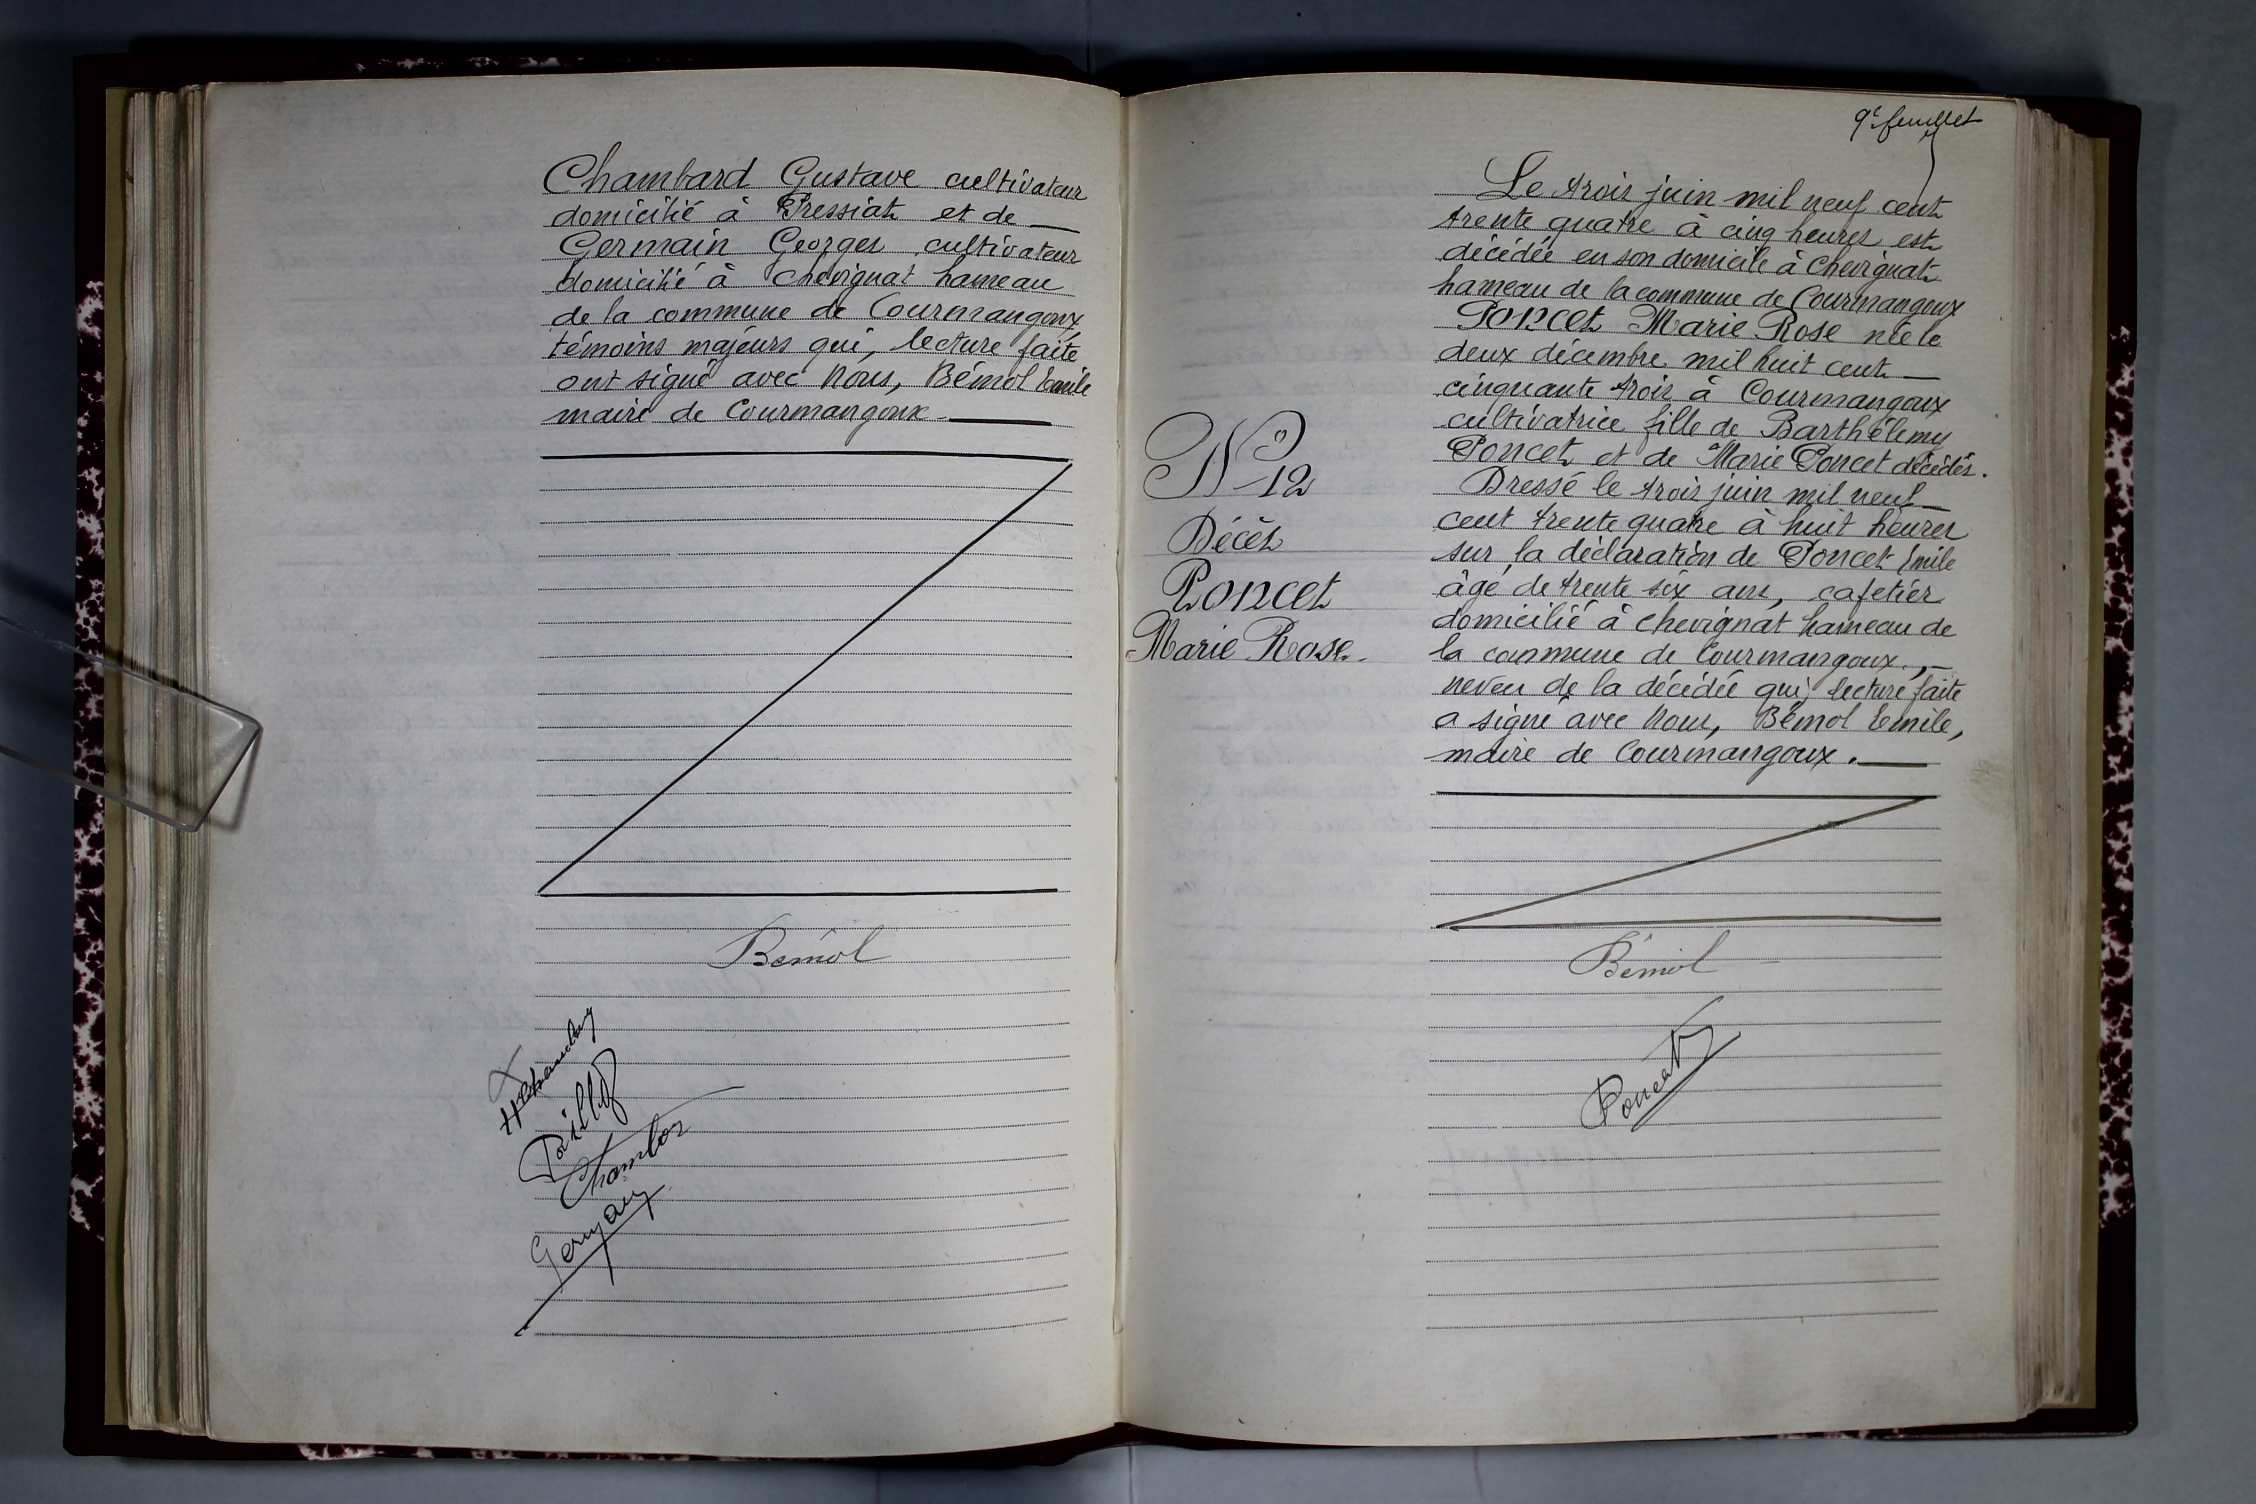 Chambard Gustave cultivateur
domicilié à Pressiat et de
Germain Georges cultivateur
domicilié à Chevignat hameau
de la commune de Courmangoux
témoins majeurs qui, lecture faite
ont signé avec Nous, Bémol Emile
maire de Courmangoux
Bémol
Poncet
9e feuillet
Le trois juin mil neuf cent
trente quatre à cinq heures est
décédée en son domicile à Chevignat
hameau de la commune de Courmangoux
Poncet Marie Rose née le
deux décembre mil huit cent
cinquante trois à Courmangoux
cultivatrice fille de Barthélemy
Poncet et de Marie Poncet décédés.
Dressé le trois juin mil neuf
cent trente quatre à huit heures
sur la déclaration de Poncet Emile
âgé de trente six ans, cafetier
domicilié à Chevignat hameau de
la commune de Courmangoux,
neveu de la décédée qui, lecture faite
a signé avec Nous, Bémol Emile,
maire de Courmangoux.
N° 12
Décès
Poncet
Marie Rose
Bémol